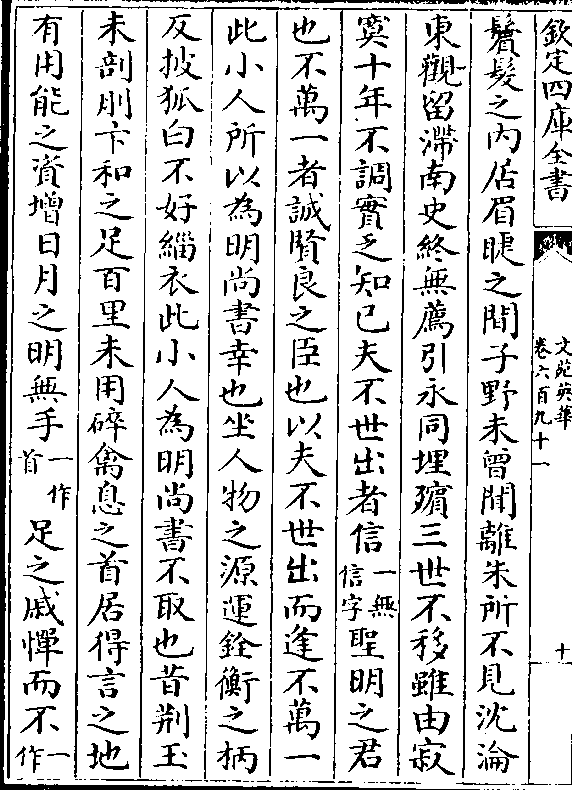 欽定四庫全書
文苑英華
卷六百九十一
十
鬢髮之内居眉睫之間子野未曾聞離朱所不見沈淪
東觀留滯南史終無薦引永同埋殯三世不移雖由寂
寞十年不調實乏知己夫不世出者信一無信字聖明之君
也不萬一者誠賢良之臣也以夫不世出而逢不萬一
此小人所以為明尚書幸也坐人物之源運銓衡之柄
反披狐白不好緇衣此小人為明尚書不取也昔荆玉
未剖刖卞和之足百里未用碎禽息之首居得言之地
有用能之資增日月之明無手一作首足之戚憚而不一作